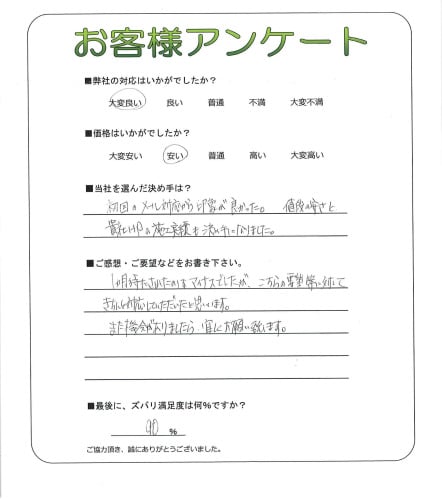 お客様アンケート
■弊社の対応はいかがでしたか?
大変良い 良い 普通 不満 大変不満
■価格はいかがでしたか?
大変安い 安い 普通 高い 大変高い
■当社を選んだ決め手は?
初回のメール対応から印象が良かった。 値段の安さと
貴社HPの施工実績も決め手になりました。
■ご感想・ご要望などをお書き下さい。
1ヶ月待たされたのはマイナスでしたが、こちらの要望等に対して
きちんと対応していただいたと思います。
また機会がありましたら、宜しくお願い致します。
■最後に、ズバリ満足度は何%ですか?
90 %
ご協力頂き、誠にありがとうございました。